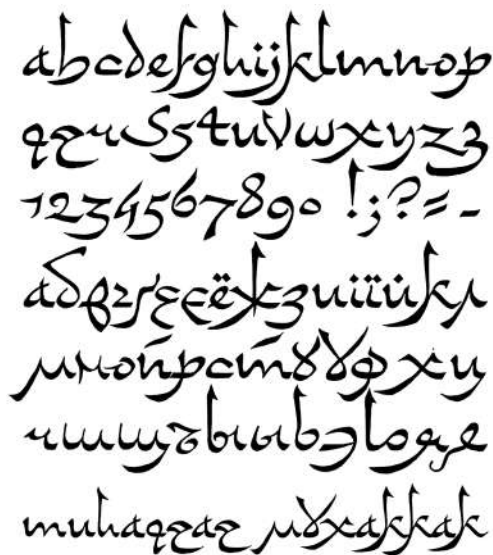 abcdefghijklmnop
qqrSstuvwxyzz
1234567890 !;?=-
абвгґеєёжзиіїйкл
мнопрстууфхц
чшщъыыьэюяя
muhaqqaq мухаккак